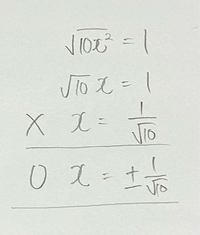 √10x² = 1
√10 x = 1
× x = 1/√10
○ x = ± 1/√10